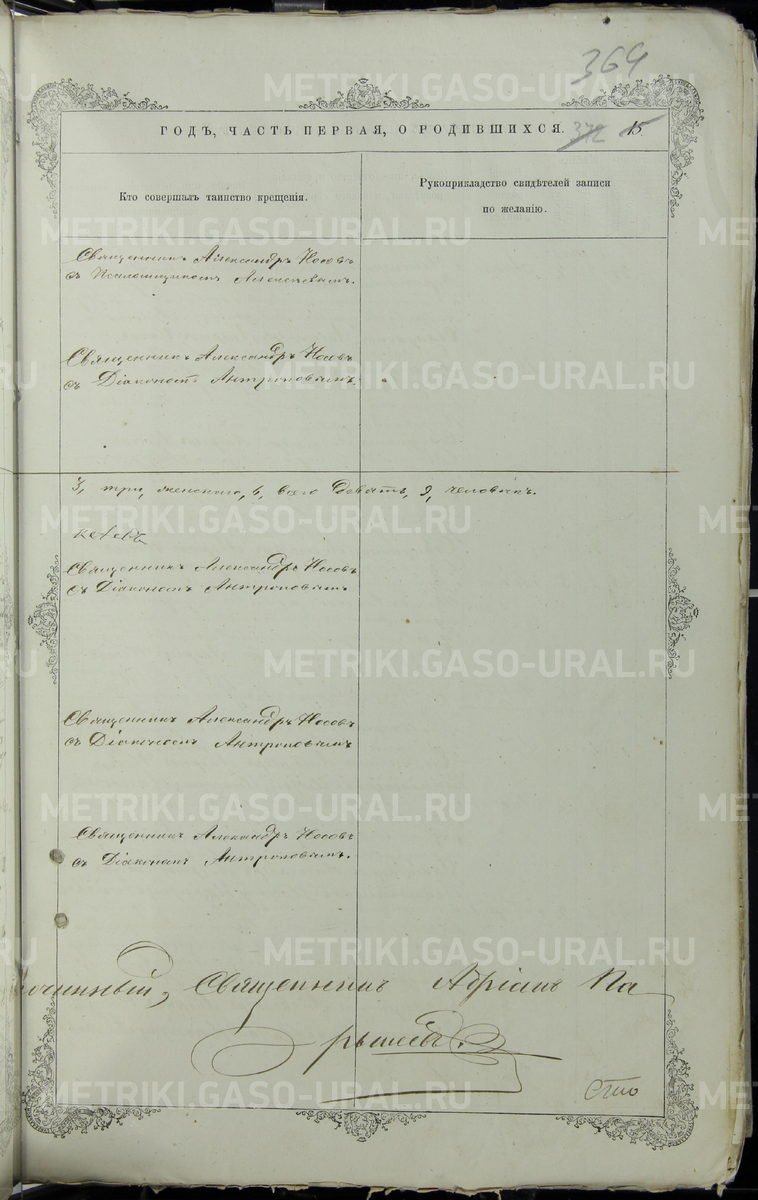 364
ГОДЪ, ЧАСТЬ ПЕРВАЯ, О РОДИВШИХСЯ. 372 15
Кто совершалъ таинство крещенія.
Рукоприкладство свидѣтелей записи
по желанію.
Священникъ Александръ Носовъ
съ Псаломщикомъ
Священникъ Александръ Носовъ
съ Діакономъ Антроповымъ.
3, три, женскаго, 6, всего девять, 9, человѣкъ.
Священникъ Александръ Носовъ
съ Діакономъ Антроповымъ
Священникъ Александръ Носовъ
съ Діакономъ Антроповымъ
Священникъ Александръ Носовъ
съ Діакономъ Антроповымъ.
Священникъ Адріанъ Па
рышевъ.
METRIKI.GASO-URAL.RU